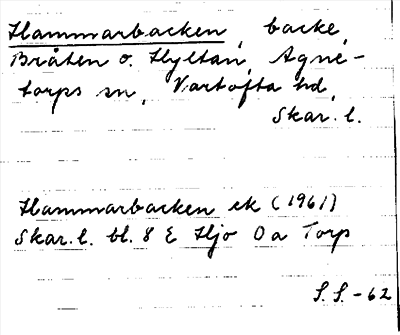 Hammarbacken, backe,
Bråten o. Hyltan, Agne-
torps sn, Vartofta hd,
Skar. l.
Hammarbacken ek (1961)
Skar. l. bl. 8 E Hjo 0 a Torp
S. S. -62